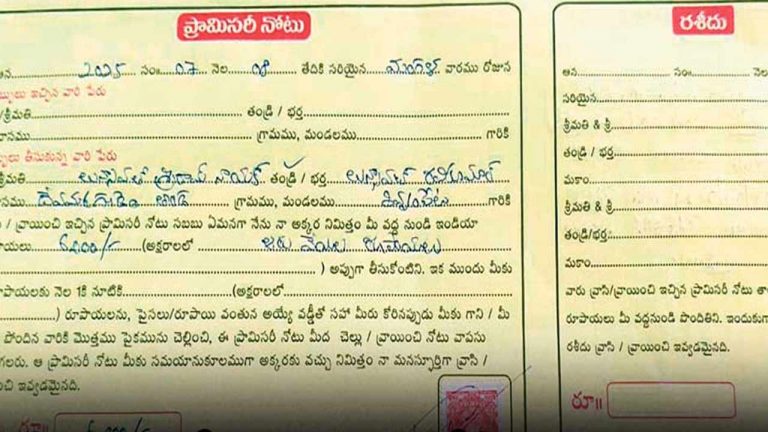 ప్రామిసరీ నోటు
ఆన 2025 సం॥ 07 నెల 08 తేదికి సరియైన మంగళ వారము రోజున
బ్బులు ఇచ్చిన వారి పేరు
/శ్రీమతి తండ్రి / భర్త
వాసము గ్రామము, మండలము గారికి
బులు తీసుకున్న వారి పేరు
శ్రీమతి లునావత్ శ్రీరామ్ నాయక్ తండ్రి / భర్త లునావత్
సము తండ గ్రామము, మండలము
/ వ్రాయించి ఇచ్చిన ప్రామిసరీ నోటు సబబు ఏమనగా నేను నా అక్కర నిమిత్తం మీ వద్ద నుండి ఇండియా
పాయలు 6000/- (అక్షరాలలో ఆరు వేలు రూపాయలు
) అప్పుగా తీసుకొంటిని. ఇక ముందు మీకు
రూపాయలకు నెల 1కి నూటికి (అక్షరాలలో
) రూపాయలను, పైసలు/రూపాయి వంతున అయ్యే వడ్డీతో సహా మీరు కోరినప్పుడు మీకు గాని / మీ
పొందిన వారికి మొత్తము పైకమును చెల్లించి, ఈ ప్రామిసరీ నోటు మీద చెల్లు / వ్రాయించి నోటు వాపసు
గలరు. ఆ ప్రామిసరీ నోటు మీకు సమయానుకూలముగా అక్కరకు వచ్చు నిమిత్తం నా మనస్ఫూర్తిగా వ్రాసి /
ంచి ఇవ్వడమైనది.
రూ॥ 6000/-
రశీదు
ఆన సం॥ నెల
సరియైన
శ్రీమతి & శ్రీ
తండ్రి / భర్త
మకాం
శ్రీమతి & శ్రీ
తండ్రి/భర్త:
మకాం
వారు వ్రాసి/వ్రాయించి ఇచ్చిన ప్రామిసరీ నోటు తా
రూపాయలు మీ వద్దనుండి పొందితిని. ఇందుకుగా
రశీదు వ్రాసి / వ్రాయించి ఇవ్వడమైనది.
రూ॥